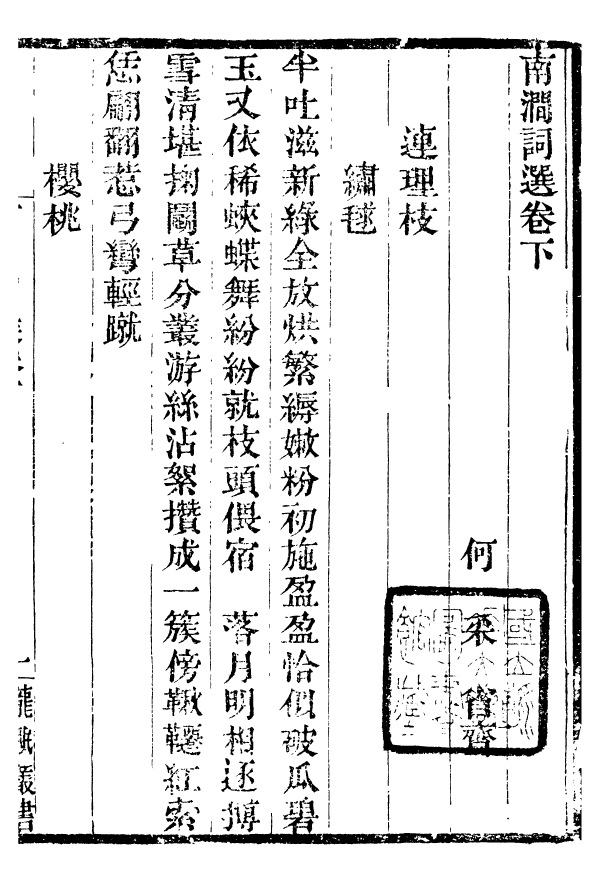 南澗詞選卷下
何 采 省齋
連理枝
繡毬
半吐滋新綠全放烘繁縟嫰粉初施盈盈恰似破瓜碧
玉又依稀蛺蝶舞紛紛就枝頭偎宿 落月明相逐摶
雪清堪掬鬭草分叢游絲沾絮攢成一簇傍鞦韆紅索
恁翩翻惹弓彎輕蹴
櫻桃